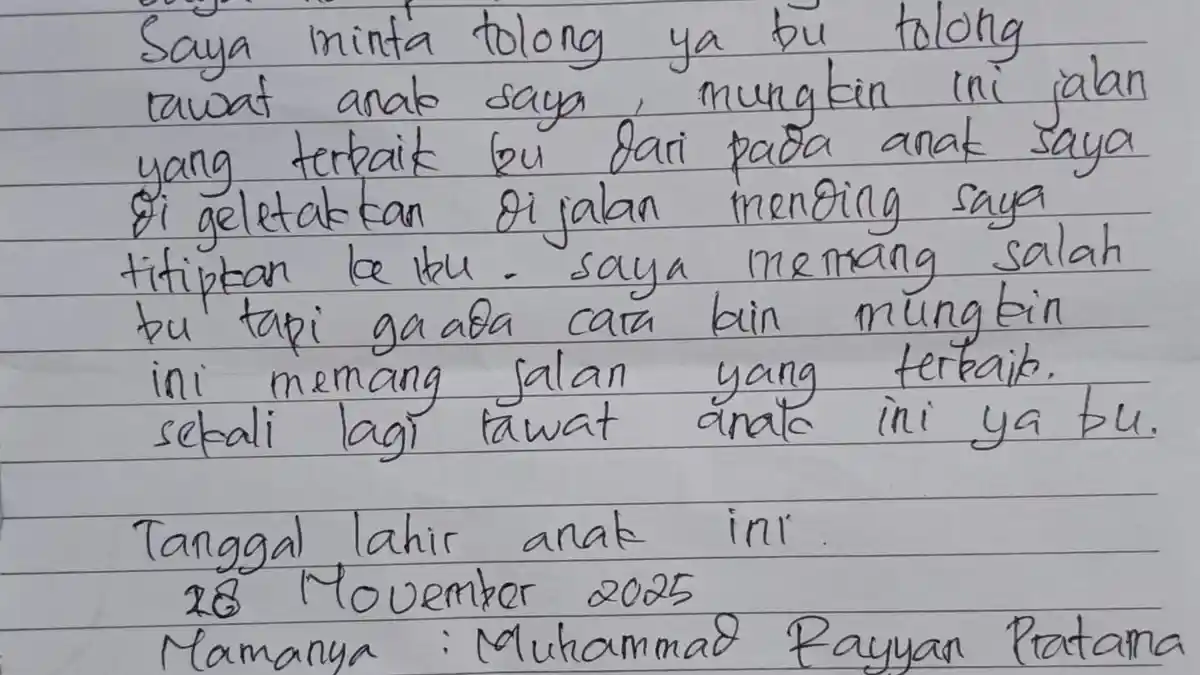 Saya minta tolong ya bu tolong
rawat anak saya, mungkin ini jalan
yang terbaik bu dari pada anak saya
di geletakkan di jalan mending saya
titipkan ke ibu. saya memang salah
bu tapi ga ada cara lain mungkin
ini memang jalan yang terbaik.
sekali lagi rawat anak ini ya bu.
Tanggal lahir anak ini.
28 November 2025
Namanya : Muhammad Rayyan Pratama